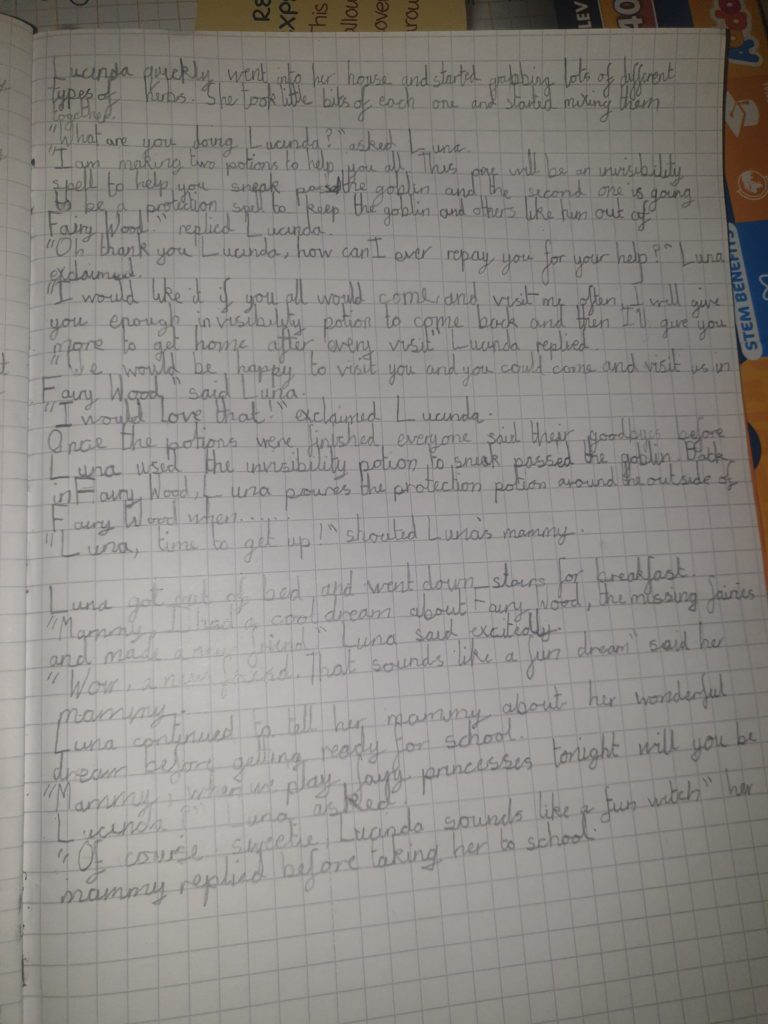 RE
XP
This
allow
over
arou
LEV
40
Add
STEM BENEFITS
Lucinda quickly went into her house and started grabbing lots of different
types of herbs. She took little bits of each one and started mixing them
together.
"What are you doing Lucinda?" asked Luna.
"I am making two potions to help you all. This one will be an invisibility
spell to help you sneak past the goblin and the second one is going
to be a protection spell to keep the goblin and others like him out of
Fairy Wood." replied Lucinda.
"Oh thank you Lucinda, how can I ever repay you for your help?" Luna
exclaimed.
"I would like it if you all would come and visit me often, I will give
you enough invisibility potion to come back and then I'll give you
more to get home after every visit" Lucinda replied.
"We would be happy to visit you and you could come and visit us in
Fairy Wood" said Luna.
"I would love that!" exclaimed Lucinda.
Once the potions were finished everyone said their goodbyes before
Luna used the invisibility potion to sneak passed the goblin. Back
in Fairy Wood, Luna poures the protection potion around the outside of
Fairy Wood when.....
"Luna, time to get up!" shouted Luna's mammy.
Luna got out of bed and went down stairs for breakfast.
"Mammy, I had a cool dream about Fairy Wood, the missing fairies
and made a new friend" Luna said excitedly.
"Wow, a new friend. That sounds like a fun dream" said her
mammy.
Luna continued to tell her mammy about her wonderful
dream before getting ready for school.
"Mammy, when we play fairy princesses tonight will you be
Lucinda?" Luna asked.
"Of course sweetie, Lucinda sounds like a fun witch" her
mammy replied before taking her to school.